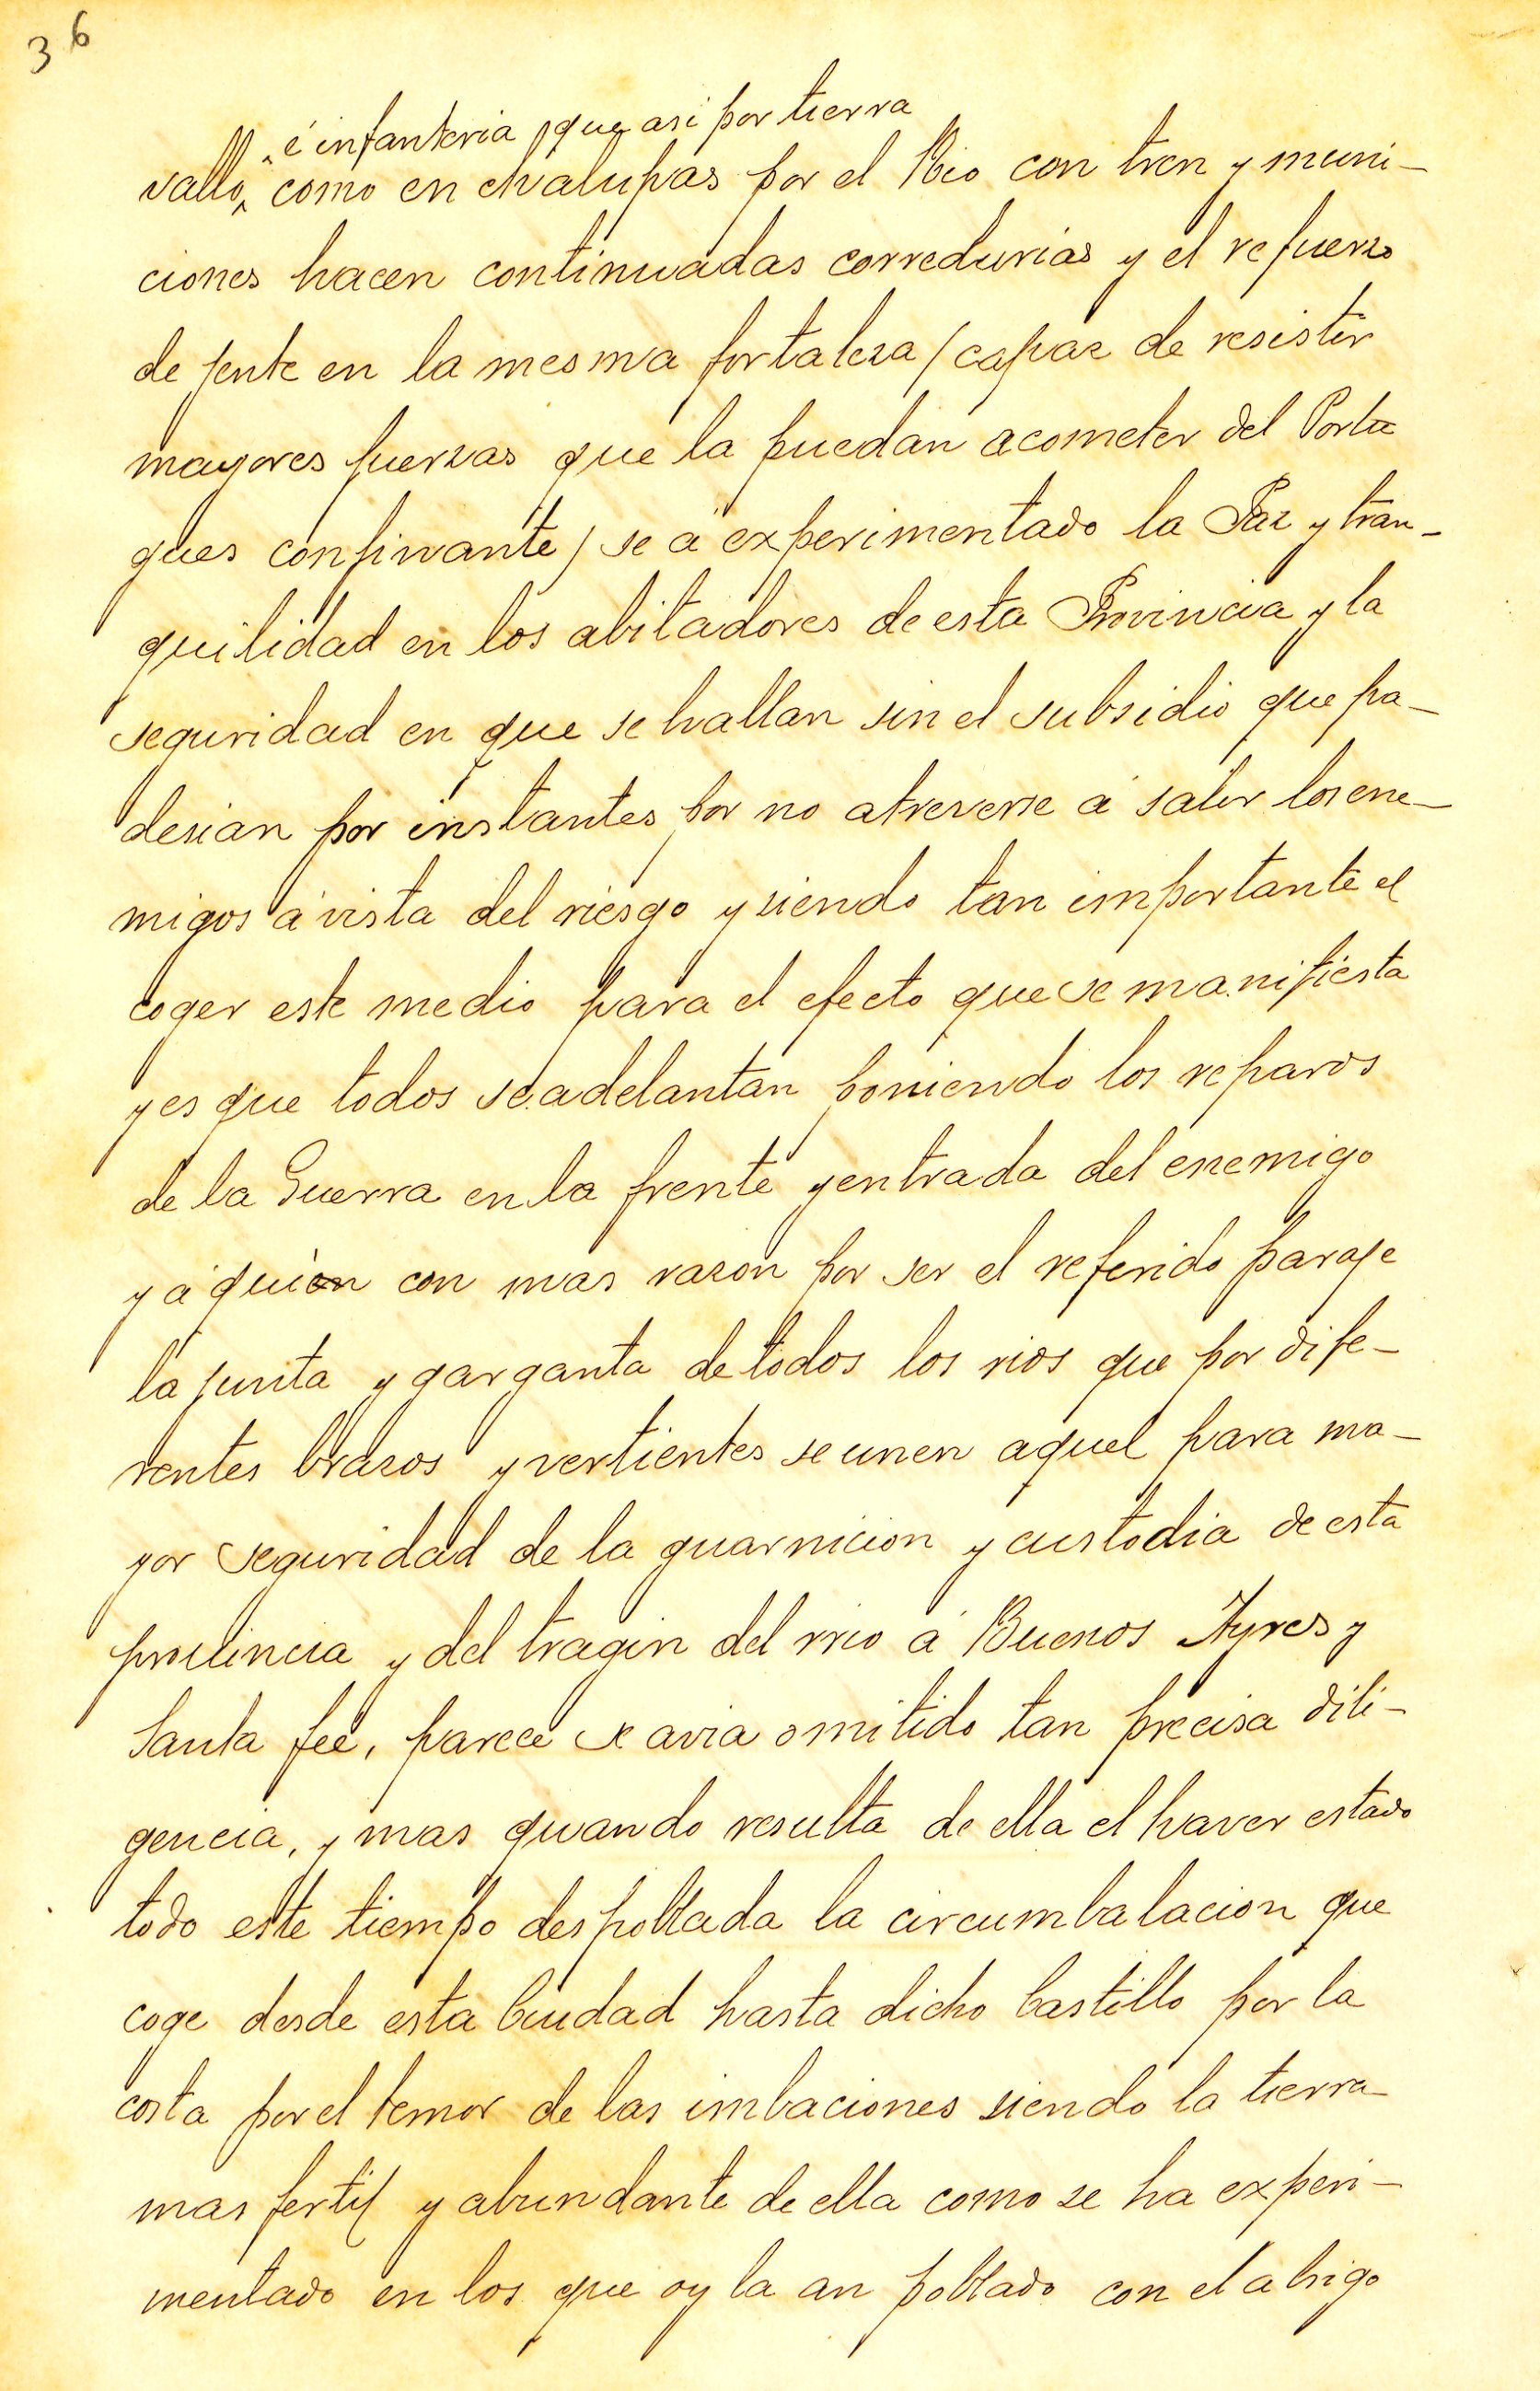 36
é infanteria que asi por tierra
vallo, como en chalupas por el Rio con tren y muni-
ciones hacen continuadas corredurias y el refuerso
de jente en la mesma fortalesa / capas de resistir
mayores fuersas que la puedan acometer del Portu
gues confinante / se á experimentado la Paz y tran-
quilidad en los abitadores de esta Provincia y la
seguridad en que se hallan sin el subsidio que pa-
desian por instantes por no atreverse á salir los ene-
migos á vista del riesgo y siendo tan importante el
coger este medio para el efecto que se manifiesta
y es que todos se adelantan poniendo los reparos
de la Guerra en la frente y entrada del enemigo
y á quien con mas rason por ser el referido paraje
la junta y garganta de todos los rios que por dife-
rentes brasos y vertientes se unen aquel para ma-
yor seguridad de la guarnicion y custodia de esta
provincia y del tragin del rrio á Buenos Ayres y
Santa fee, parece se avia omitido tan precisa dili-
gencia, y mas quando resulta de ella el haver estado
todo este tiempo despoblada la circumbalacion que
coge desde esta Ciudad hasta dicho Castillo por la
costa por el temor de las imbaciones siendo la tierra
mas fertil y abundante de ella como se ha experi-
mentado en los que oy la an poblado con el abrigo